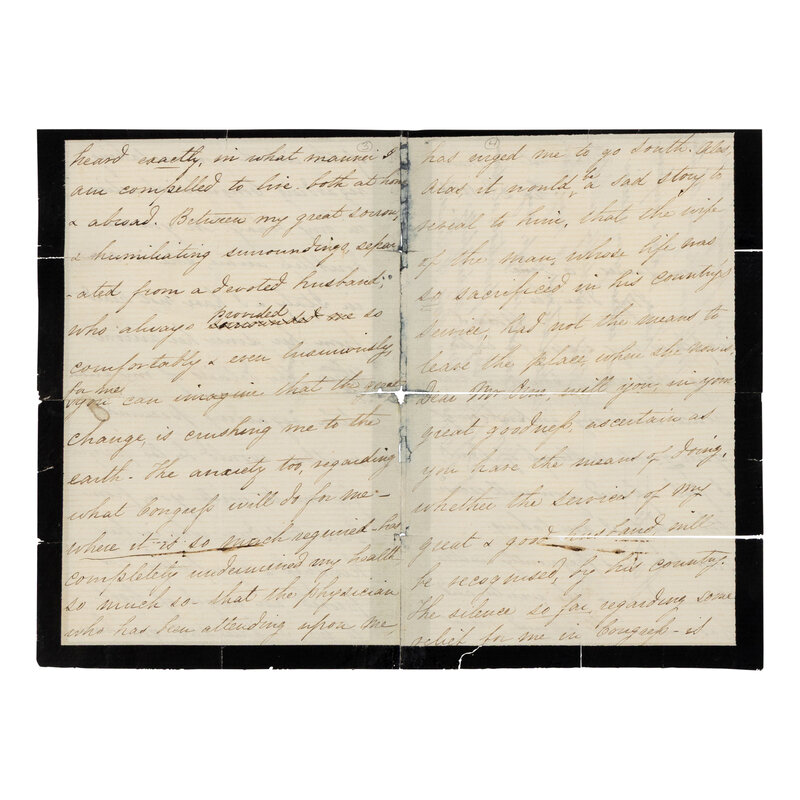 3
heard exactly, in what manner I
am compelled to live. both at home
& abroad. Between my great sorrow,
& humiliating surroundings, separ
-ated from a devoted husband,
who always provided
surrounded me so
comfortably & even luxuriously,
for me
you can imagine that the great
change, is crushing me to the
earth. The anxiety too, regarding
what Congress will do for me -
where it is so much required - has
completely undermined my health
so much so - that the physician
who has been attending upon me,
4
has urged me to go South. Alas,
Alas, it would be a sad story to
reveal to him, that the wife
of the man, whose life was
so sacrificed in his country's
service, had not the means to
leave the place, where she now is.
Dear Mr, will you, in your
great goodness, ascertain as
you have the means of doing,
whether the services of my
great & good husband, will
be recognised, by his country.
The silence so far, regarding some
relief for me in Congress - is